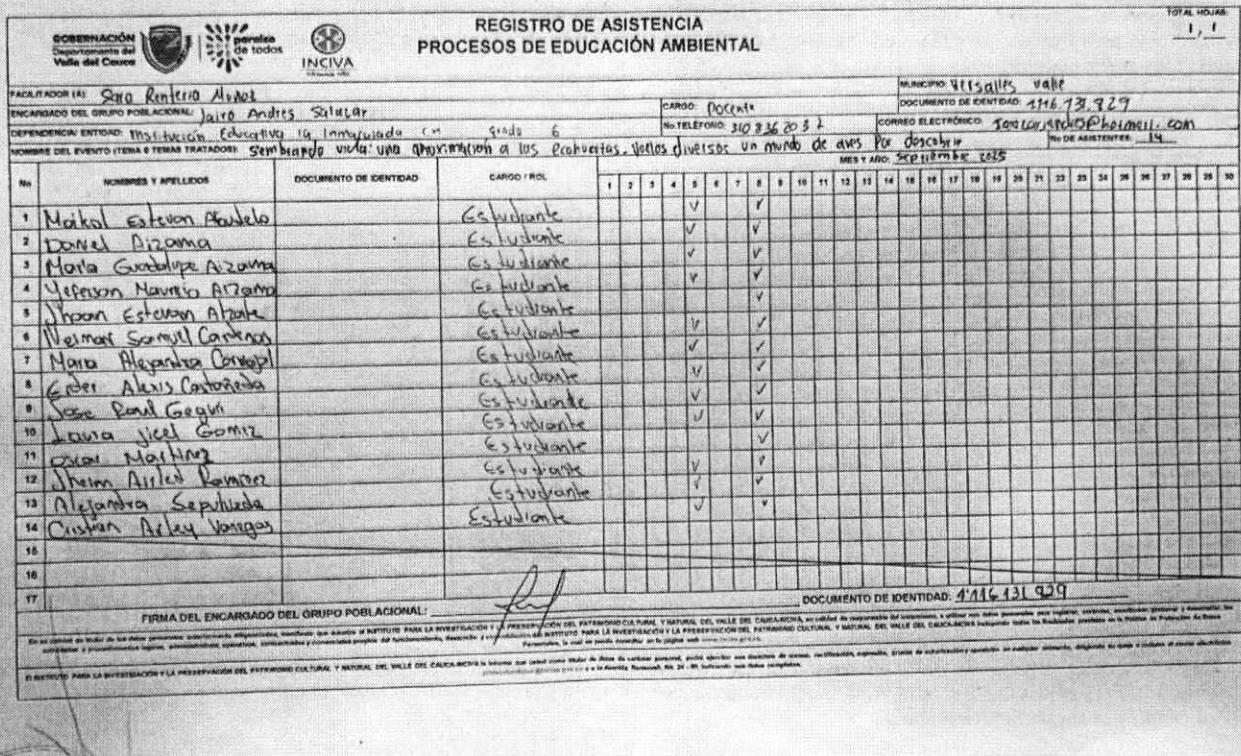 TOTAL HOJAS
1, 1
GOBERNACIÓN
Departamento del
Valle del Cauca
paraíso
de todos
INCIVA
REGISTRO DE ASISTENCIA
PROCESOS DE EDUCACIÓN AMBIENTAL
FACILITADOR (A): Sara Renteria Muñoz
MUNICIPIO: Versalles Valle
ENCARGADO DEL GRUPO POBLACIONAL: Jairo Andres Salazar
CARGO: Docente
DOCUMENTO DE IDENTIDAD: 1116.131.929
DEPENDENCIA/ ENTIDAD: Institución Educativa la Inmaculada CM grado 6
No. TELÉFONO: 310 836 2032
CORREO ELECTRÓNICO:
NOMBRE DEL EVENTO (TEMA O TEMAS TRATADOS): Sembrando vida: una aproximacion a las Ecohuertas. Vuelos diversos un mundo de aves por descubrir
No DE ASISTENTES: 14
MES Y AÑO: Septiembre 2025
No NOMBRES Y APELLIDOS DOCUMENTO DE IDENTIDAD CARGO / ROL 1 2 3 4 5 6 7 8 9 10 11 12 13 14 15 16 17 18 19 20 21 22 23 24 25 26 27 28 29 30
1 Maikol Estevan Estudiante
2 Daniel Aizama Estudiante
3 Maria Guadalupe Aizama Estudiante
4 Yeferson Mauricio Aizama Estudiante
5 Jhoan Estevan Alzate Estudiante
6 Weimar Samuel Cardenas Estudiante
7 Maria Alejandra Carvajal Estudiante
8 Eider Alexis Castañeda Estudiante
9 Jose Raul Estudiante
10 Laura Jicel Gomez Estudiante
11 Oscar Martinez Estudiante
12 Jheim Ramirez Estudiante
13 Alejandra Sepulveda Estudiante
14 Cristian Arley Vargas Estudiante
15
16
17
FIRMA DEL ENCARGADO DEL GRUPO POBLACIONAL:
DOCUMENTO DE IDENTIDAD: 1'116 131 929